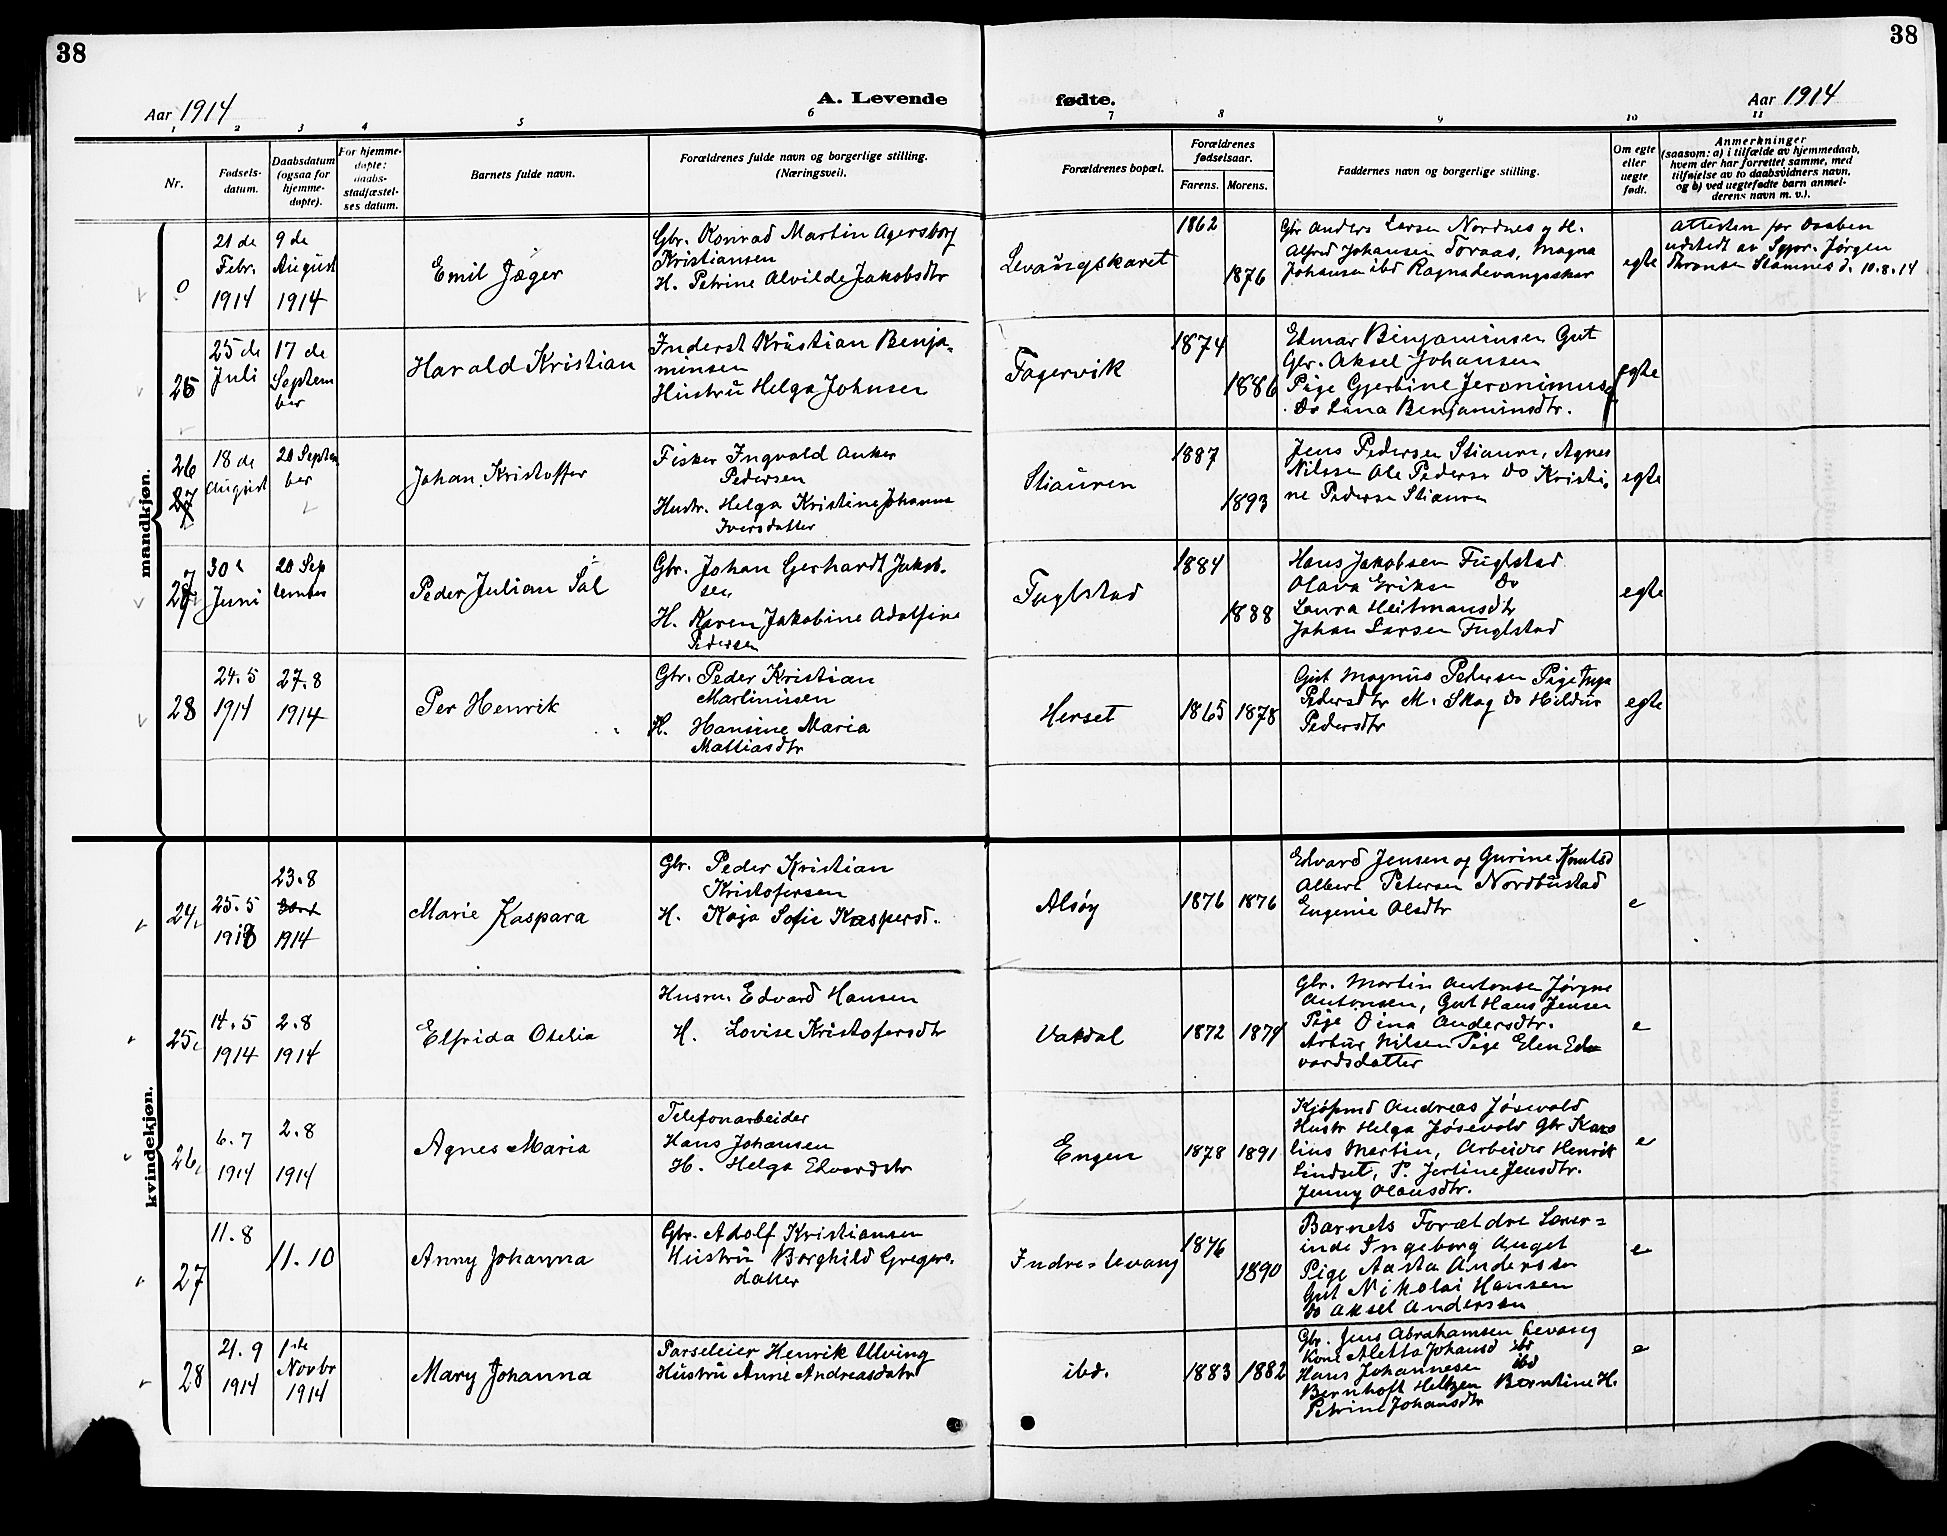 38
38
Aar 1914
A. Levende
fødte.
Aar 1914
1 2 3 4 5 6 7 8 9 10 11
Nr.
Fødsels-
datum.
Daabsdatum
(ogsaa for
hjemme-
døpte).
For hjemme-
døpte:
daabs-
stadfæstel-
ses datum.
Barnets fulde navn.
Forældrenes fulde navn og borgerlige stilling.
(Næringsvei).
Forældrenes bopæl.
Forældrenes
fødselsaar.
Farens. Morens.
Faddernes navn og borgerlige stilling.
Om egte
eller
uegte
født.
Anmerkninger
(saasom: a) i tilfælde av hjemmedaab,
hvem der har forrettet samme, med
tilføielse av to daabsvidners navn,
og b) ved uegtefødte barn anmel-
derens navn m. v.).
mandkjøn.
0
21 de
Febr.
1914
9 de
August
1914
Emil Jæger
Gbr. Konrad Martin Agersborg
Kristiansen
H. Petrine Alvilde Jakobsdtr
Levangskaret
1862
1876
Gbr Anders Larsen Nordnes og H.
Alfred Johansen Toraas, Magna
Johansen ibd Ragna Levangsskar
egte
Attesten for Daaben
udstedt av Sgpr. Jørgen
Stamnes d. 10.8.14
25
25 de
Juli
17 de
Septem
ber
Harald Kristian
Inderst Kristian Benja-
minsen
Hustru Helga Johnsen
Fagervik
1874
1886
Edmar Benjaminsen Gut
Gbr. Aksel Johansen
Pige Gjertine Jeronimus
Do Lina Benjaminsdtr.
egte
26
18 de
August
20 Septem
ber
Johan Kristoffer
Fisker Ingvald Anker
Pedersen
Hustr. Helga Kristine Johanna
Iversdatter
Stiauren
1887
1893
Jens Pedersen Stiauren, Agnes
Nilssen Ole Pedersen Do Kristi-
ne Pedersen Stiauren
egte
27
30
Juni
20 Sep
tember
Peder Julian Sal
Gbr. Johan Gerhardt Jakob-
sen
H. Karen Jakobine Adolfine
Pedersen
Fuglstad
1884
1888
Hans Jakobsen Fuglstad
Olava Eriksen Do
Laura Heitmansdtr
Johan Larsen Fuglstad
egte
28
24.5
1914
27.8
1914
Per Henrik
Gbr. Peder Kristian
Martinussen
H. Hansine Maria
Mattiasdtr
Herset
1865
1878
Gut Magnus Pedersen Pige Inga
Pedersdtr M. Skog Do Hildur
Pedersdtr
egte
kvindekjøn.
24,
25.5
23.8
1914
Marie Kaspara
Gbr. Peder Kristian
Kristofersen
H. Kaja Sofie Kaspersd.
Alsøy
1876
1876
Edvard Jensen og Gurine Knutsd
Albert Petersen Nordbustad
Eugenie Olsdtr
e
25,
14.5
1914
2.8
1914
Elfrida Otelia
Husm. Edvard Hansen
H. Lovise Kristofersdtr
Vatdal
1872
1874
Gbr. Martin Antonsen Jørgine
Antonsen, Gut Hans Jensen
Pige Dina Andersdtr.
Artur Nilsen Pige Elen Ed-
vardsdatter
e
26,
6.7
1914
2.8
1914
Agnes Maria
Telefonarbeider
Hans Johansen
H. Helga Edvardsdtr
Engen
1878
1891
Kjøpmd Andreas Jøsevold
Hustr Helga Jøsevold Gbr Karo
lius Martin, Arbeider Henrik
Lindset, P. Jertine Jensdtr.
Jenny Olausdtr.
e
27
11.8
11.10
Anny Johanna
Gbr. Adolf Kristiansen
Hustru Borghild Gregers-
datter
Indre-Levang
1876
1890
Barnets Forældre Lærer-
inde Ingeborg Auget
Pige Aasta Anderssen
Gut Nikolai Hansen
Do Aksel Andersen
e
28
21.9
1914
1ste
Novbr
1914
Mary Johanna
Parseleier Henrik Ulving
Hustru Anne Andreasdatr
ibd.
1883
1882
Gbr. Jens Abrahamsen Levang
Kone Aletta Johansd ibd
Hans Johannesen ibd
Bernhoft Heltzen Berntine H.
Petrine Johansdtr
e